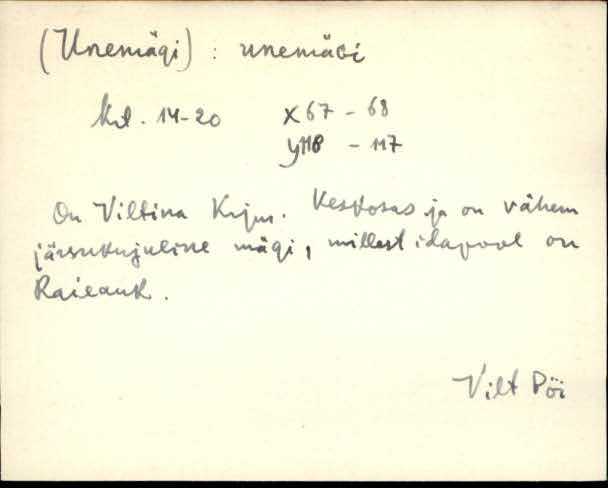 (Unemägi) : unemäGi
Krt. 14-20 X 67 - 68
y 118 - 117
On Viltina Kujus. Keskosas ja on vähem
järsukujuline mägi, millest idapool on
Raieauk.
Vilt Pöi